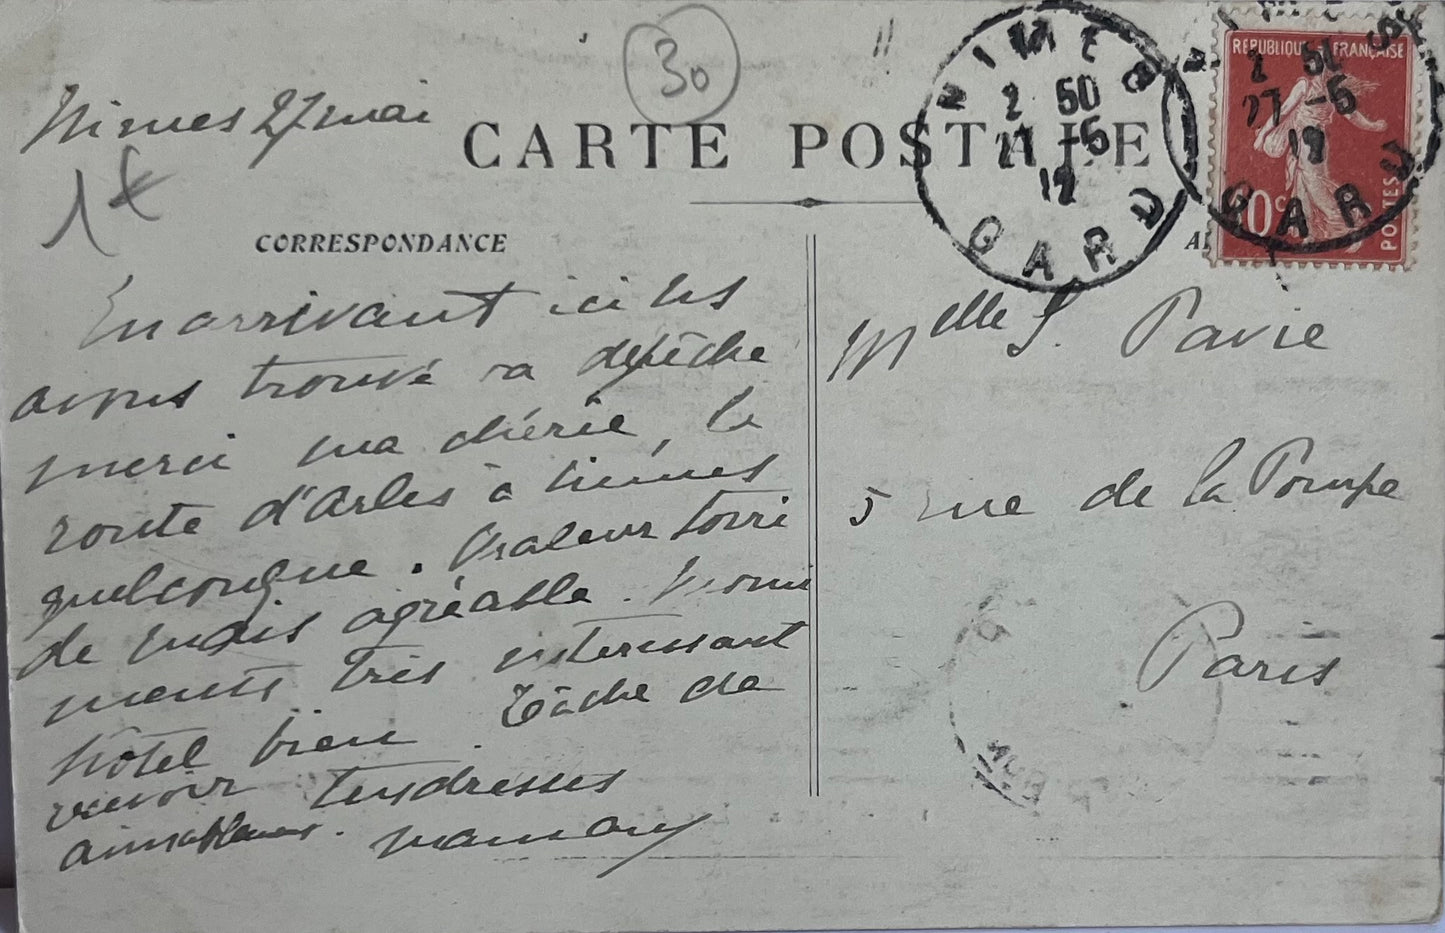 30
Nimes 27 mai
CARTE POSTALE
1€
CORRESPONDANCE
NIMES
2 50
27 -5
12
GARD
RÉPUBLIQUE FRANÇAISE
2 50
27 -5
12
GARD
10c
POSTES
En arrivant ici
avons trouvé ta dépêche
merci ma chérie, la
route d'Arles à Nimes
quelconque. Chaleur torri
de mais agréable. Monu
ments très interessant
hôtel bien. Tâche de
venir tendresses
maman
Melle S. Pavie
5 rue de la Pompe
Paris